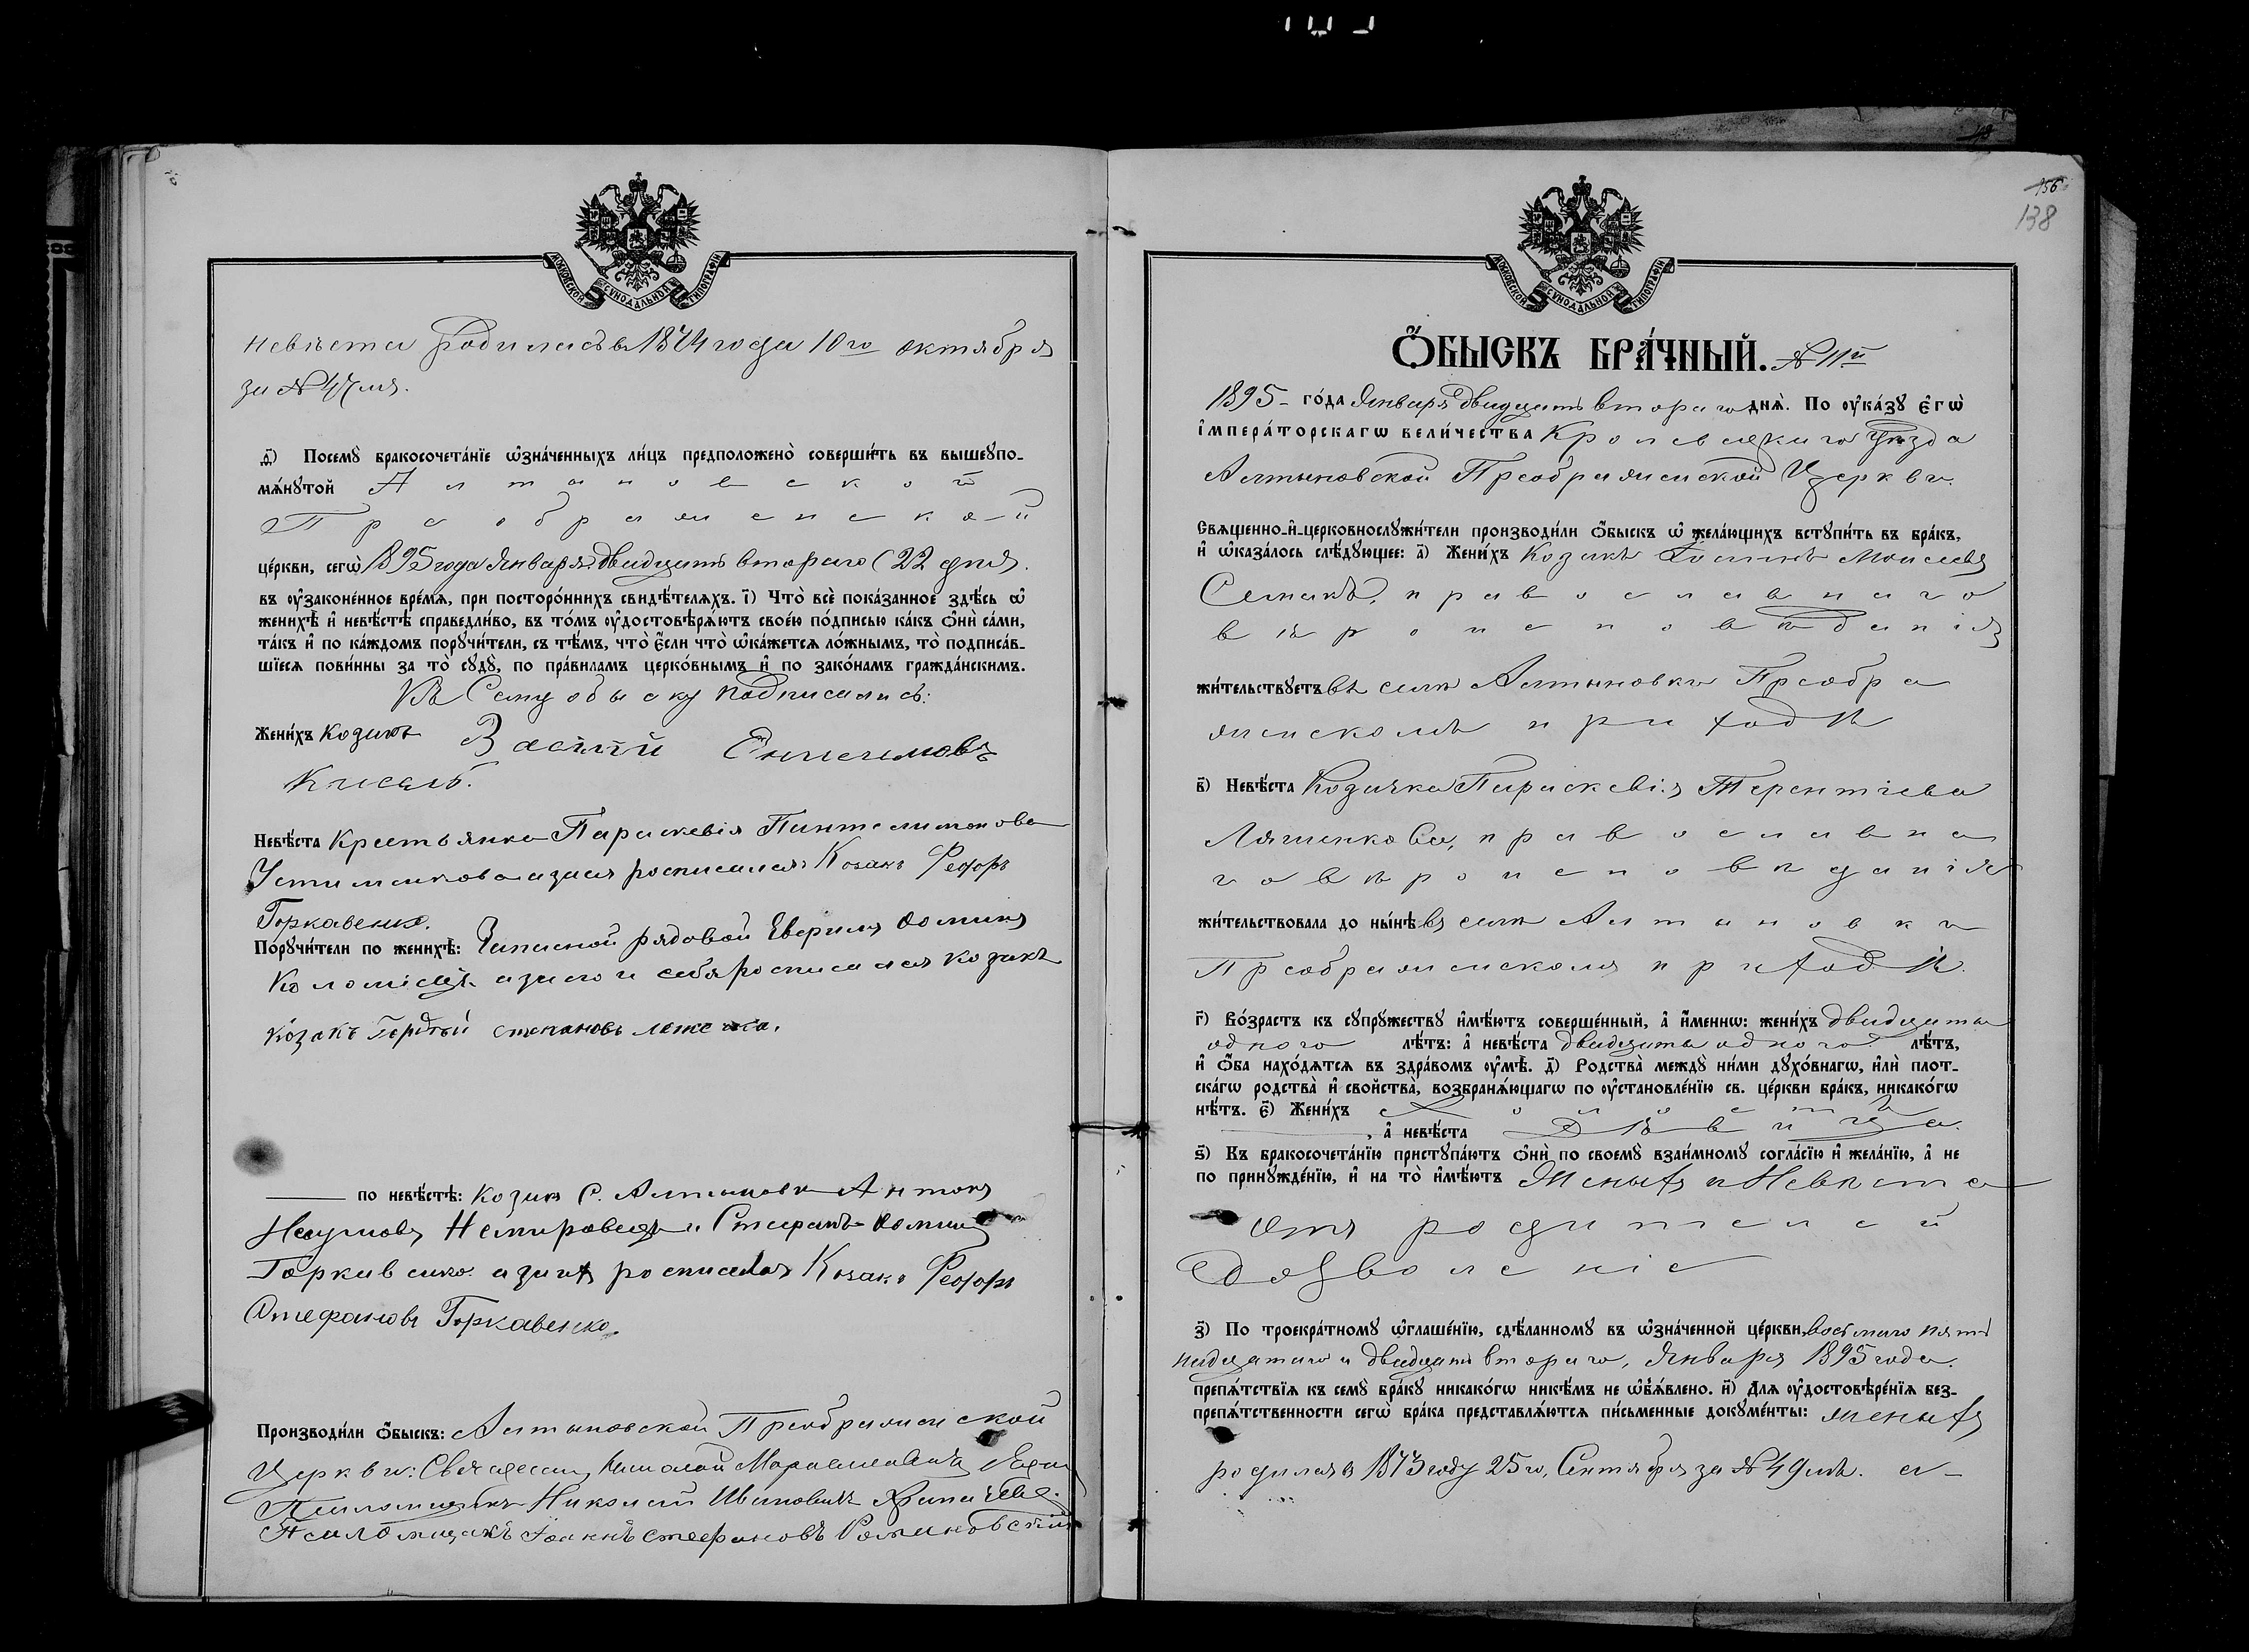 МОСКОВСКОЙ СѴНОДАЛЬНОЙ ТИПОГРАФІИ
невѣста родилась въ 1874 года 10го октября
за № 47мъ.
д҃) Посемꙋ̀ бракосочета́нїе ѡ҆зна́ченныхъ ли́цъ предположено̀ соверши́ть въ вышеꙋпо-
мѧ́нꙋтой Алтыновской
Преображенской
це́ркви, сегѡ̀ 1895 года Января двадцать втораго (22 дня.
въ ᲂу҆законе́нное вре́мѧ, при посторо́ннихъ свидѣ́телѧхъ. і҃) Что̀ всѐ пока́занное здѣ́сь ѡ҆
женихѣ̀ и҆ невѣ́стѣ справедли́во, въ то́мъ ᲂу҆достовѣрѧ́ютъ свое́ю по́дписью ка́къ ѻ҆нѝ са́ми,
та́къ и҆ по ка́ждомъ порꙋчи́тели, съ тѣ́мъ, что̀ є҆́сли что̀ ѡ҆ка́жетсѧ ло́жнымъ, то̀ подписа́в-
шїесѧ пови́нны за то̀ сꙋдꙋ̀, по пра́виламъ церко́внымъ и҆ по зако́намъ гражда́нскимъ.
Къ Сему обыску подписались:
Жени́хъ козакъ Васілій Онисимовъ
Кисель.
Невѣ́ста Крестьянка Параскевія Пантелимонова
а за ея росписался Козакъ Федоръ
Горкавенко.
Порꙋчи́тели по женихѣ̀: Запасной рядовой Ѳоминъ
Коломіецъ а за его и себя росписался козакъ
козакъ Гордѣй степановъ
по невѣ́стѣ: козаки С. Алтыновки Антонъ
Наумовъ Немировецъ и Стефанъ Ѳоминъ
Горкавенко а за ихъ росписался Козакъ Федоръ
Стефановъ Горкавенко.
Производи́ли ѻ҆́быскъ: Алтыновской Преображенской
Церкви: Священникъ Николай
Псаломщикъ Николай Ивановичъ
Псаломщикъ Іоаннъ Стефановъ Романовскій
156
138
МОСКОВСКОЙ СѴНОДАЛЬНОЙ ТИПОГРАФІИ
Ѻ҆́БЫСКЪ БРА́ЧНЫЙ. № 11й
1895 – го́да Января двадцать втораго днѧ̀. По ᲂу҆ка́зꙋ є҆гѡ̀
і҆мпера́торскагѡ вели́чества Кролевецкаго Уѣзда
Алтыновской Преображенской Церкви.
Свѧще́нно-и҆-церковнослꙋжи́тели производи́ли ѻ҆́быскъ ѡ҆ жела́ющихъ встꙋпи́ть въ бра́къ,
и҆ ѡ҆каза́лось слѣ́дꙋющее: а҃) Жени́хъ Козакъ Іоаннъ Моисеевъ
Семакъ, православнаго
вѣроисповѣданія
жи́тельствꙋетъ въ селѣ Алтыновкѣ Преобра
женскомъ приходѣ
в҃) Невѣ́ста Козачка Параскевія Терентіева
Ляшенкова, православна
го вѣроисповѣданія
жи́тельствовала до ны́нѣ въ селѣ Алтыновкѣ
Преображенскомъ приходѣ.
г҃) Во́зрастъ къ сꙋпрꙋ́жествꙋ и҆мѣ́ютъ соверше́нный, а҆ и҆́меннѡ: жени́хъ двадцати
одного лѣ́тъ: а҆ невѣ́ста двадцати одного лѣ́тъ,
и҆ ѻ҆́ба нахо́дѧтсѧ въ здра́вомъ ᲂу҆мѣ̀. д҃) Родства̀ междꙋ̀ ни́ми дꙋхо́внагѡ, и҆лѝ плот-
ска́гѡ родства̀ и҆ сво́йства̀, возбранѧ́ющагѡ по ᲂу҆становле́нїю св. це́ркви бра́къ, никако́гѡ
нѣ́тъ. є҃) Жени́хъ холостъ
, а҆ невѣ́ста Дѣвица.
ѕ҃) Къ бракосочета́нїю пристꙋпа́ютъ ѻ҆нѝ по своемꙋ̀ взаи́мномꙋ согла́сїю и҆ жела́нїю, а҆ не
по принꙋжде́нїю, и҆ на то̀ и҆мѣ́ютъ Женихъ и Невѣста
отъ родителей
дозволеніе
з҃) По троекра́тномꙋ ѡ҆глаше́нїю, сдѣ́ланномꙋ въ ѡ҆зна́ченной це́ркви, восьмаго пят
надцатаго и двадцать втораго, Января 1895 года.
препѧ́тствїѧ къ семꙋ̀ бра́кꙋ никако́гѡ никѣ́мъ не ѡ҆б̾ѧ́влено. и҃) Длѧ ᲂу҆достовѣре́нїѧ без-
препѧ́тственности сегѡ̀ бра́ка представлѧ́ютсѧ пи́сьменные докꙋме́нты: женихъ
родился въ 1873 году 25го, Сентября за № 49мъ. а –